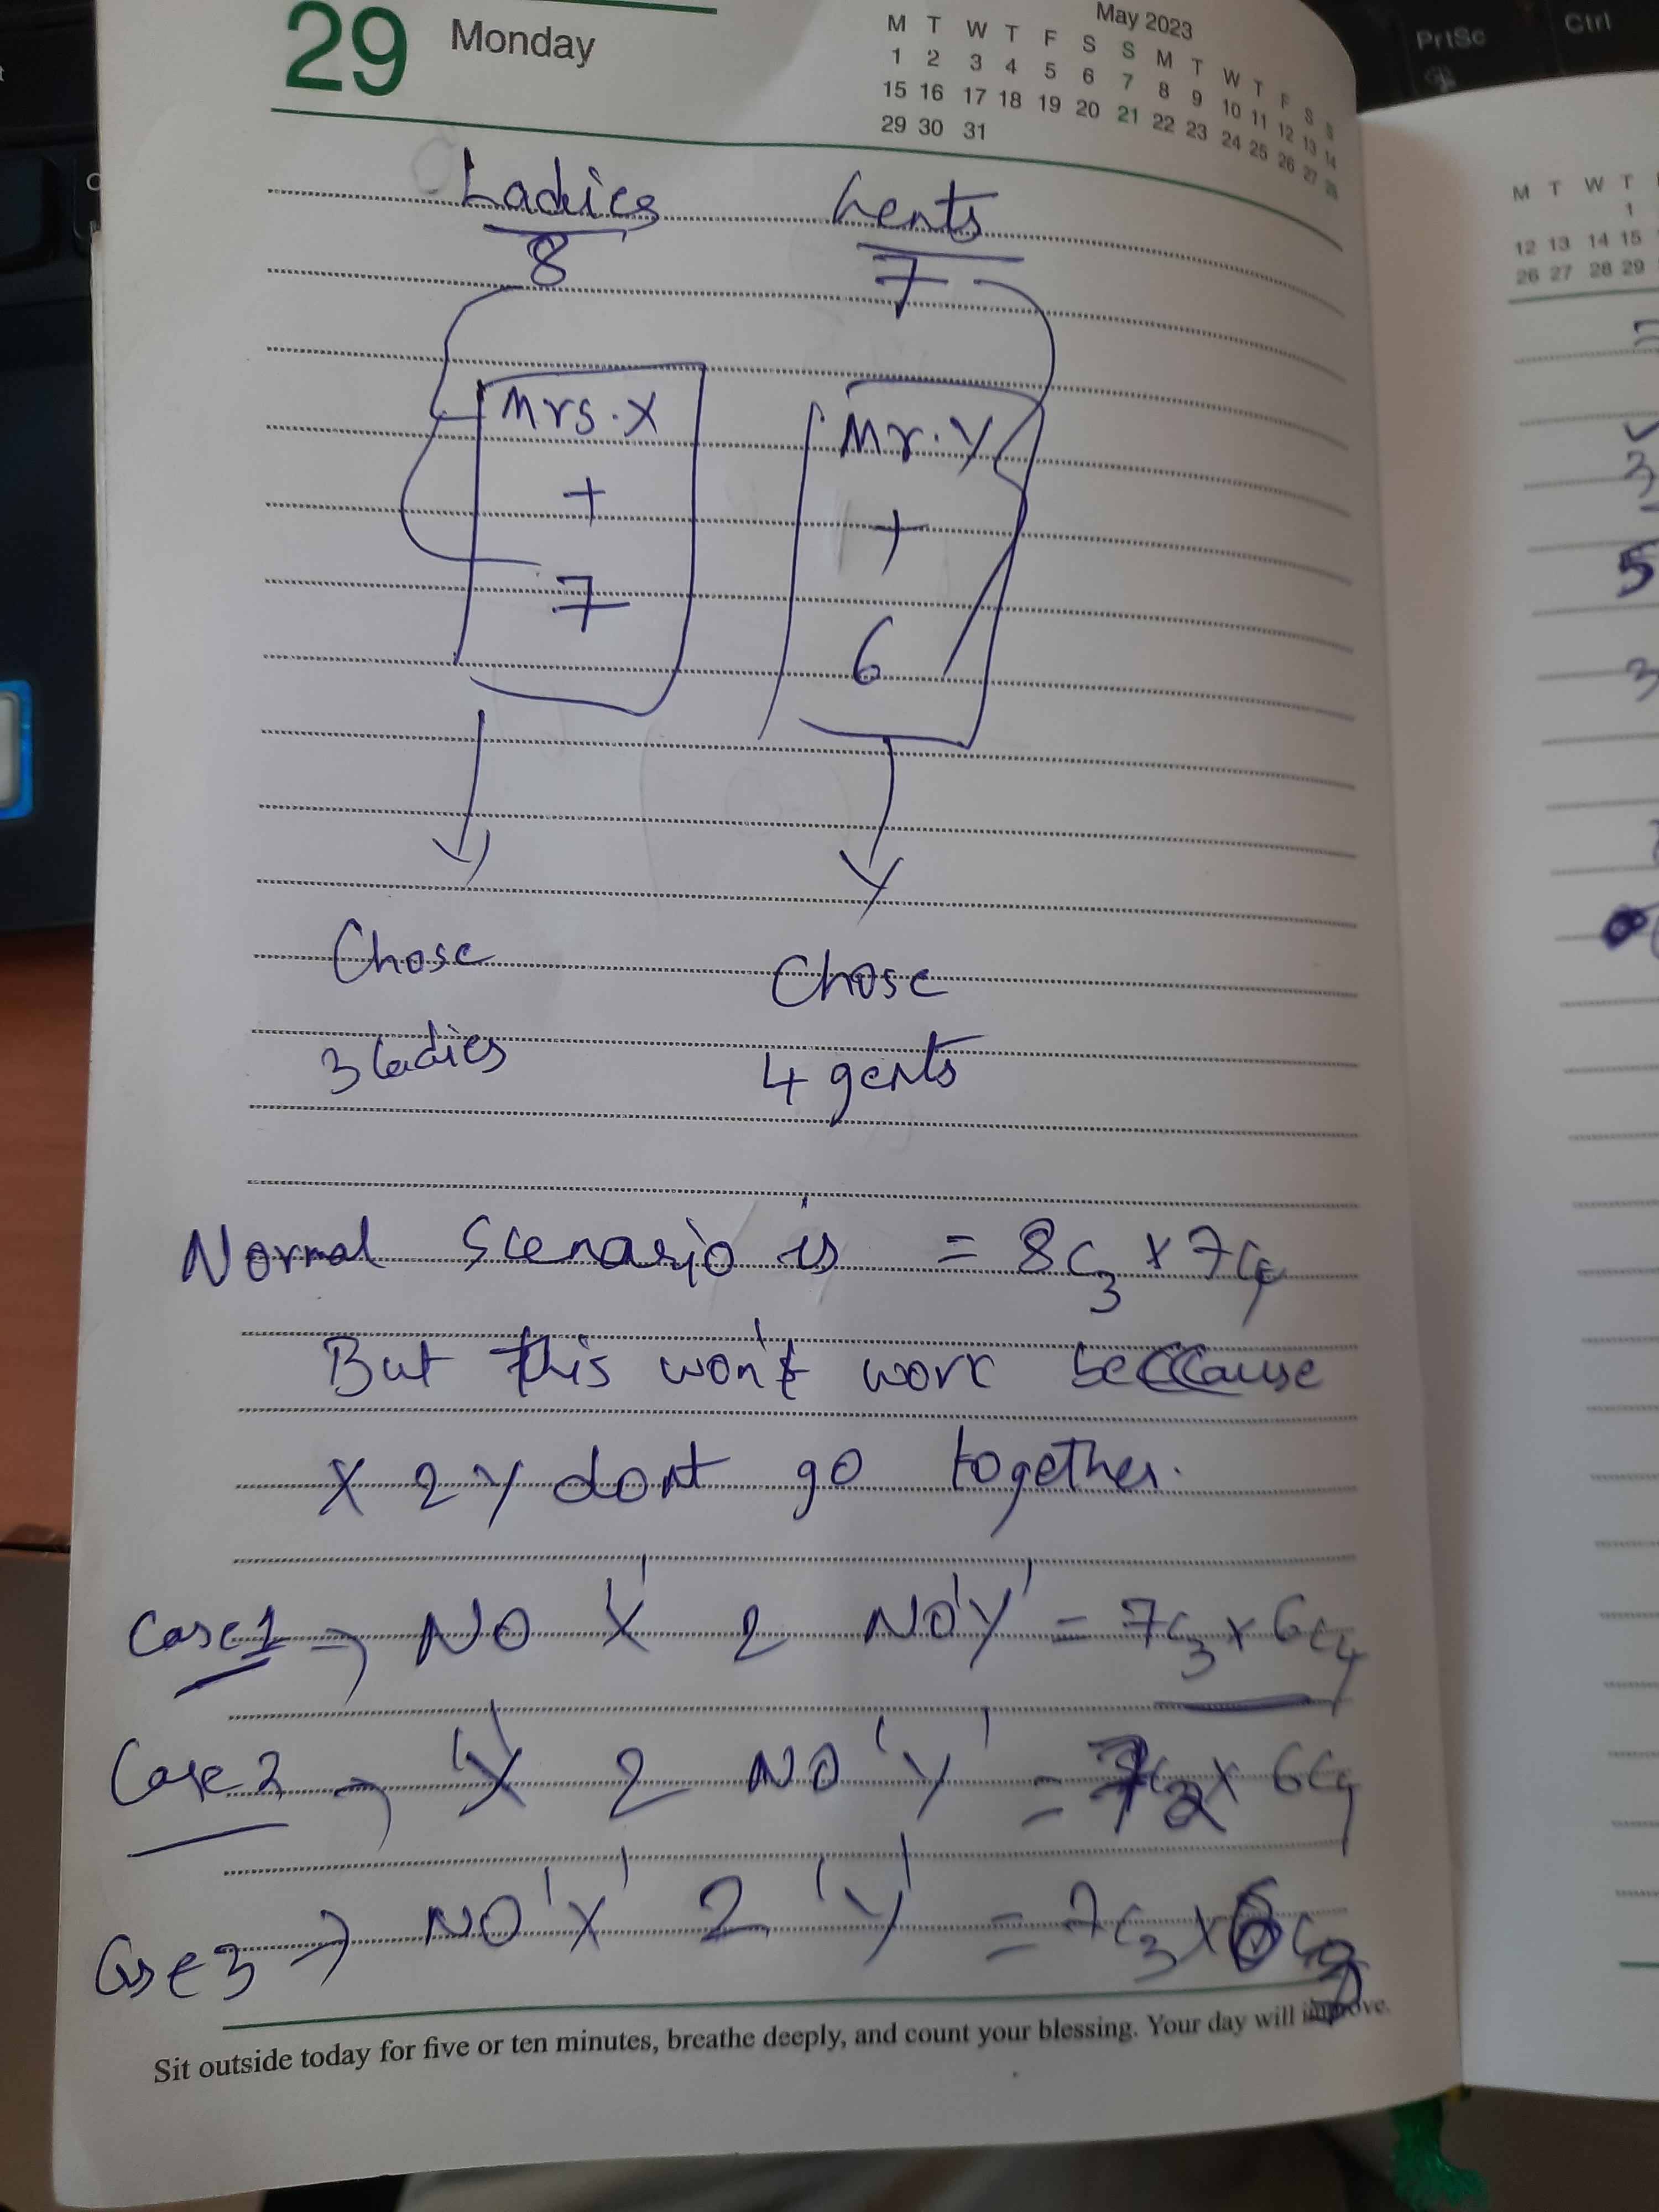 29 Monday
May 2023
M T W T F S S M T W T F S S
1 2 3 4 5 6 7 8 9 10 11 12 13 14
15 16 17 18 19 20 21 22 23 24 25 26 27 28
29 30 31
PrtSc
Ctrl
M T W T
1
12 13 14 15
26 27 28 29
Ladies Gents
8 7
Mrs. X Mr. Y
+ +
7 6
Chose Chose
3 ladies 4 gents
Normal Scenario is = 8c3 x 7c4
But this won't work because
X & Y dont go together.
Case1 → NO 'X' & NO 'Y' = 7c3 x 6c4
Case2 → 'X' & NO 'Y' = 7c2 x 6c4
Case3 → NO 'X' & 'Y' = 7c3 x 6c3
Sit outside today for five or ten minutes, breathe deeply, and count your blessing. Your day will improve.